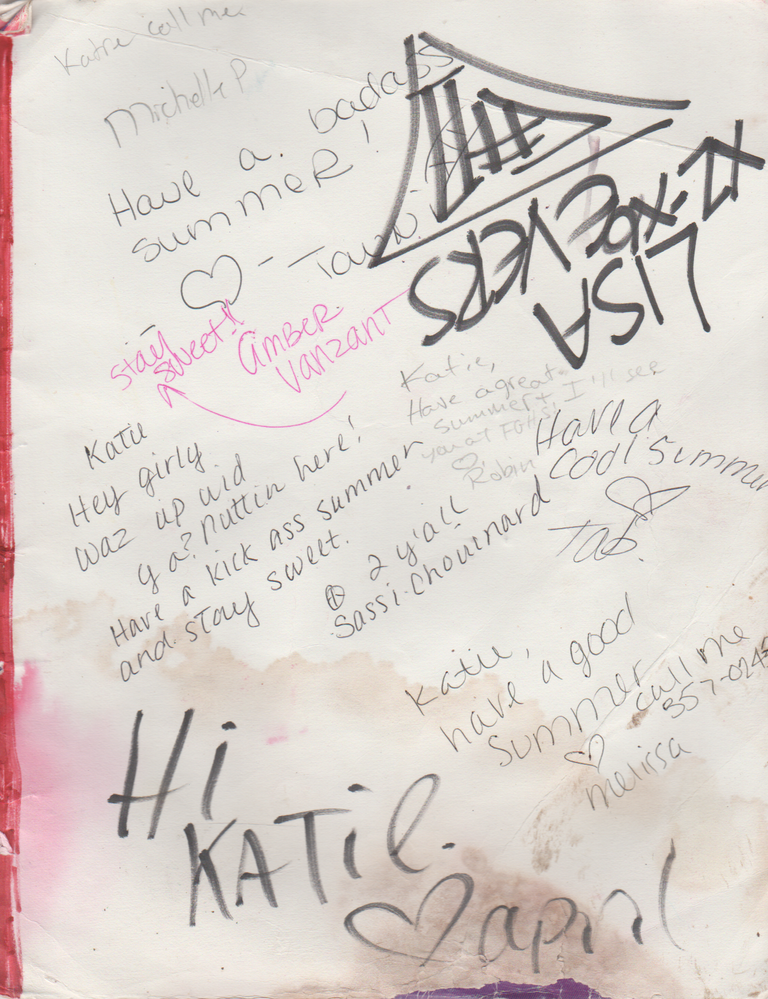 Katie call me
Michelle P
Have a badass
summer!
♡ - Tawni
LISA
Stay
sweet!!
Amber
Vanzant
Katie,
Have a great
summer + I'll see
you at FGHS!
♡ Robin
Katie
Hey girly
waz up wid
ya? nuttin here!
Have a kick ass summer
and stay sweet.
2 y'all
Sassi Chouinard
Have a
Cool Summer
Tab
Katie,
have a good
summer
call me
357-024
♡
melissa
Hi
KATiE.
♡ april